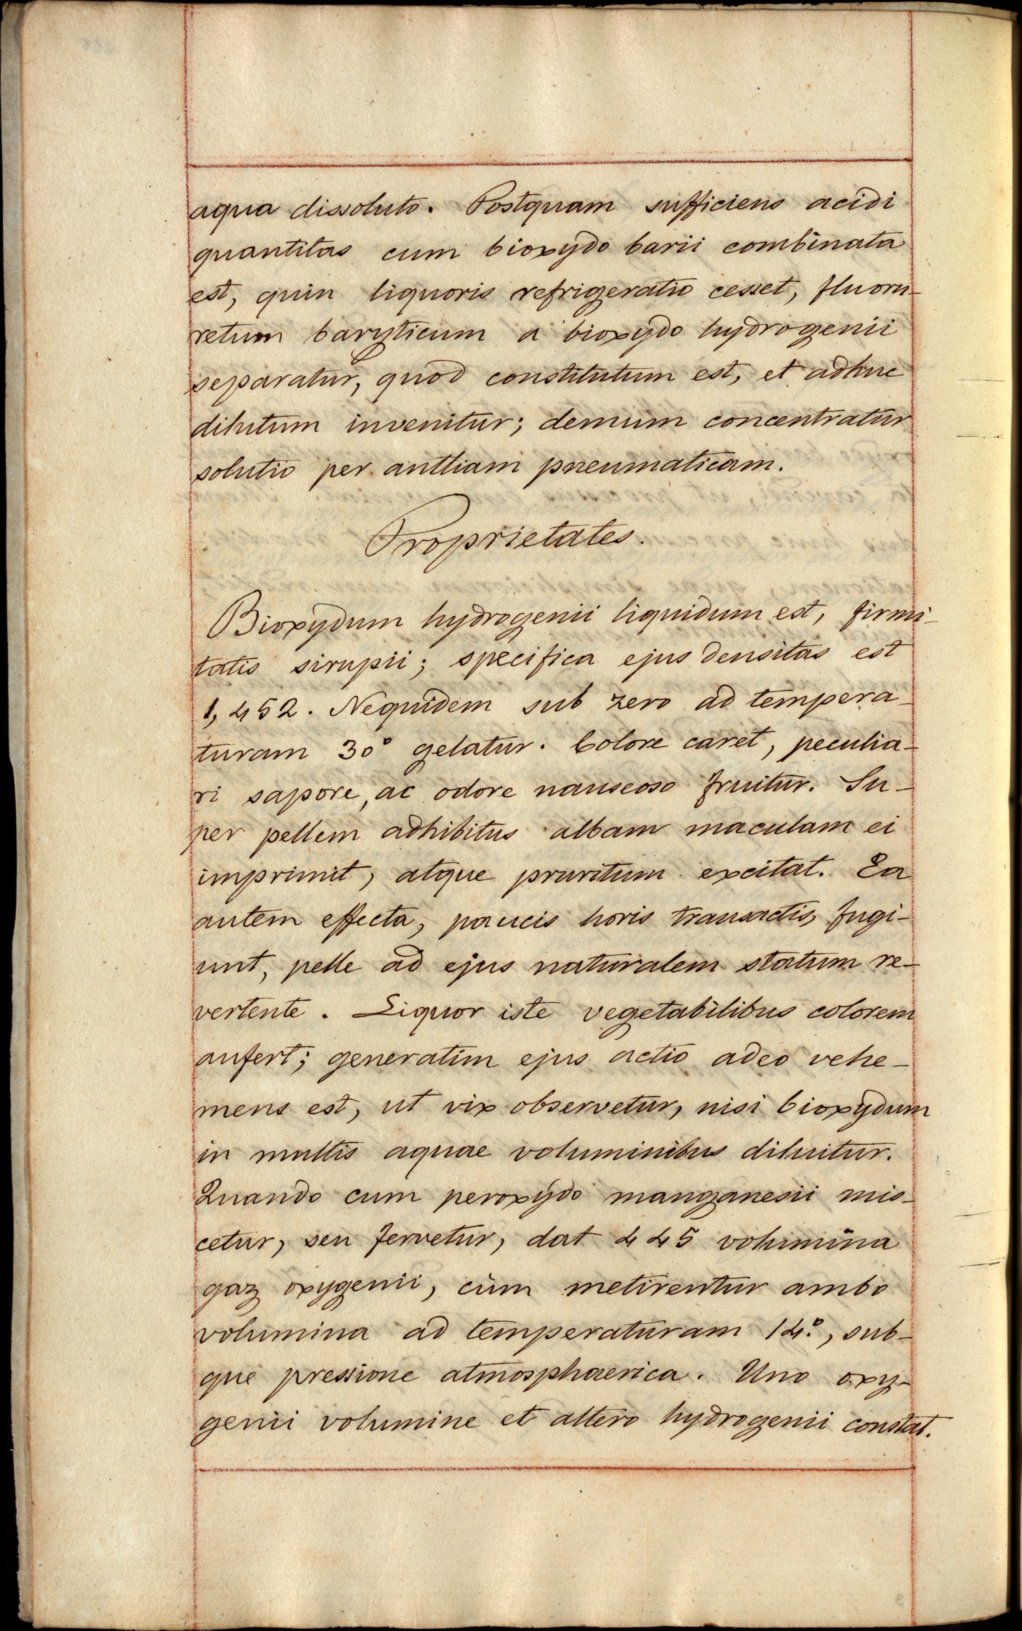 aqua dissoluto. Postquam sufficiens acidi
quantitas cum bioxydo barii combinata
est, quin liquoris refrigeratio cesset, fluoru-
retum baryticum a bioxydo hydrogenii
separatur, quod constitutum est, et adhuc
dilutum invenitur; demum concentratur
solutio per antliam pneumaticam.
Proprietates.
Bioxydum hydrogenii liquidum est, firmi-
tatis sirupii; specifica ejus densitas est
1,452. Nequidem sub zero ad tempera-
turam 30° gelatur. Colore caret, peculia-
ri sapore, ac odore nauseoso fruitur. Su-
per pellem adhibitus albam maculam ei
imprimit, atque pruritum excitat. Ea
autem effecta, paucis horis transactis, fugi-
unt, pelle ad ejus naturalem statum re-
vertente. Liquor iste vegetabilibus colorem
aufert; generatim ejus actio adeo vehe-
mens est, ut vix observetur, nisi bioxydum
in multis aquae voluminibus diluitur.
Quando cum peroxydo manganesii mis-
cetur, seu fervetur, dat 445 volumina
gaz oxygenii, cum metirentur ambo
volumina ad temperaturam 14.°, sub-
que pressione atmosphaerica. Uno oxy-
genii volumine et altero hydrogenii constat.